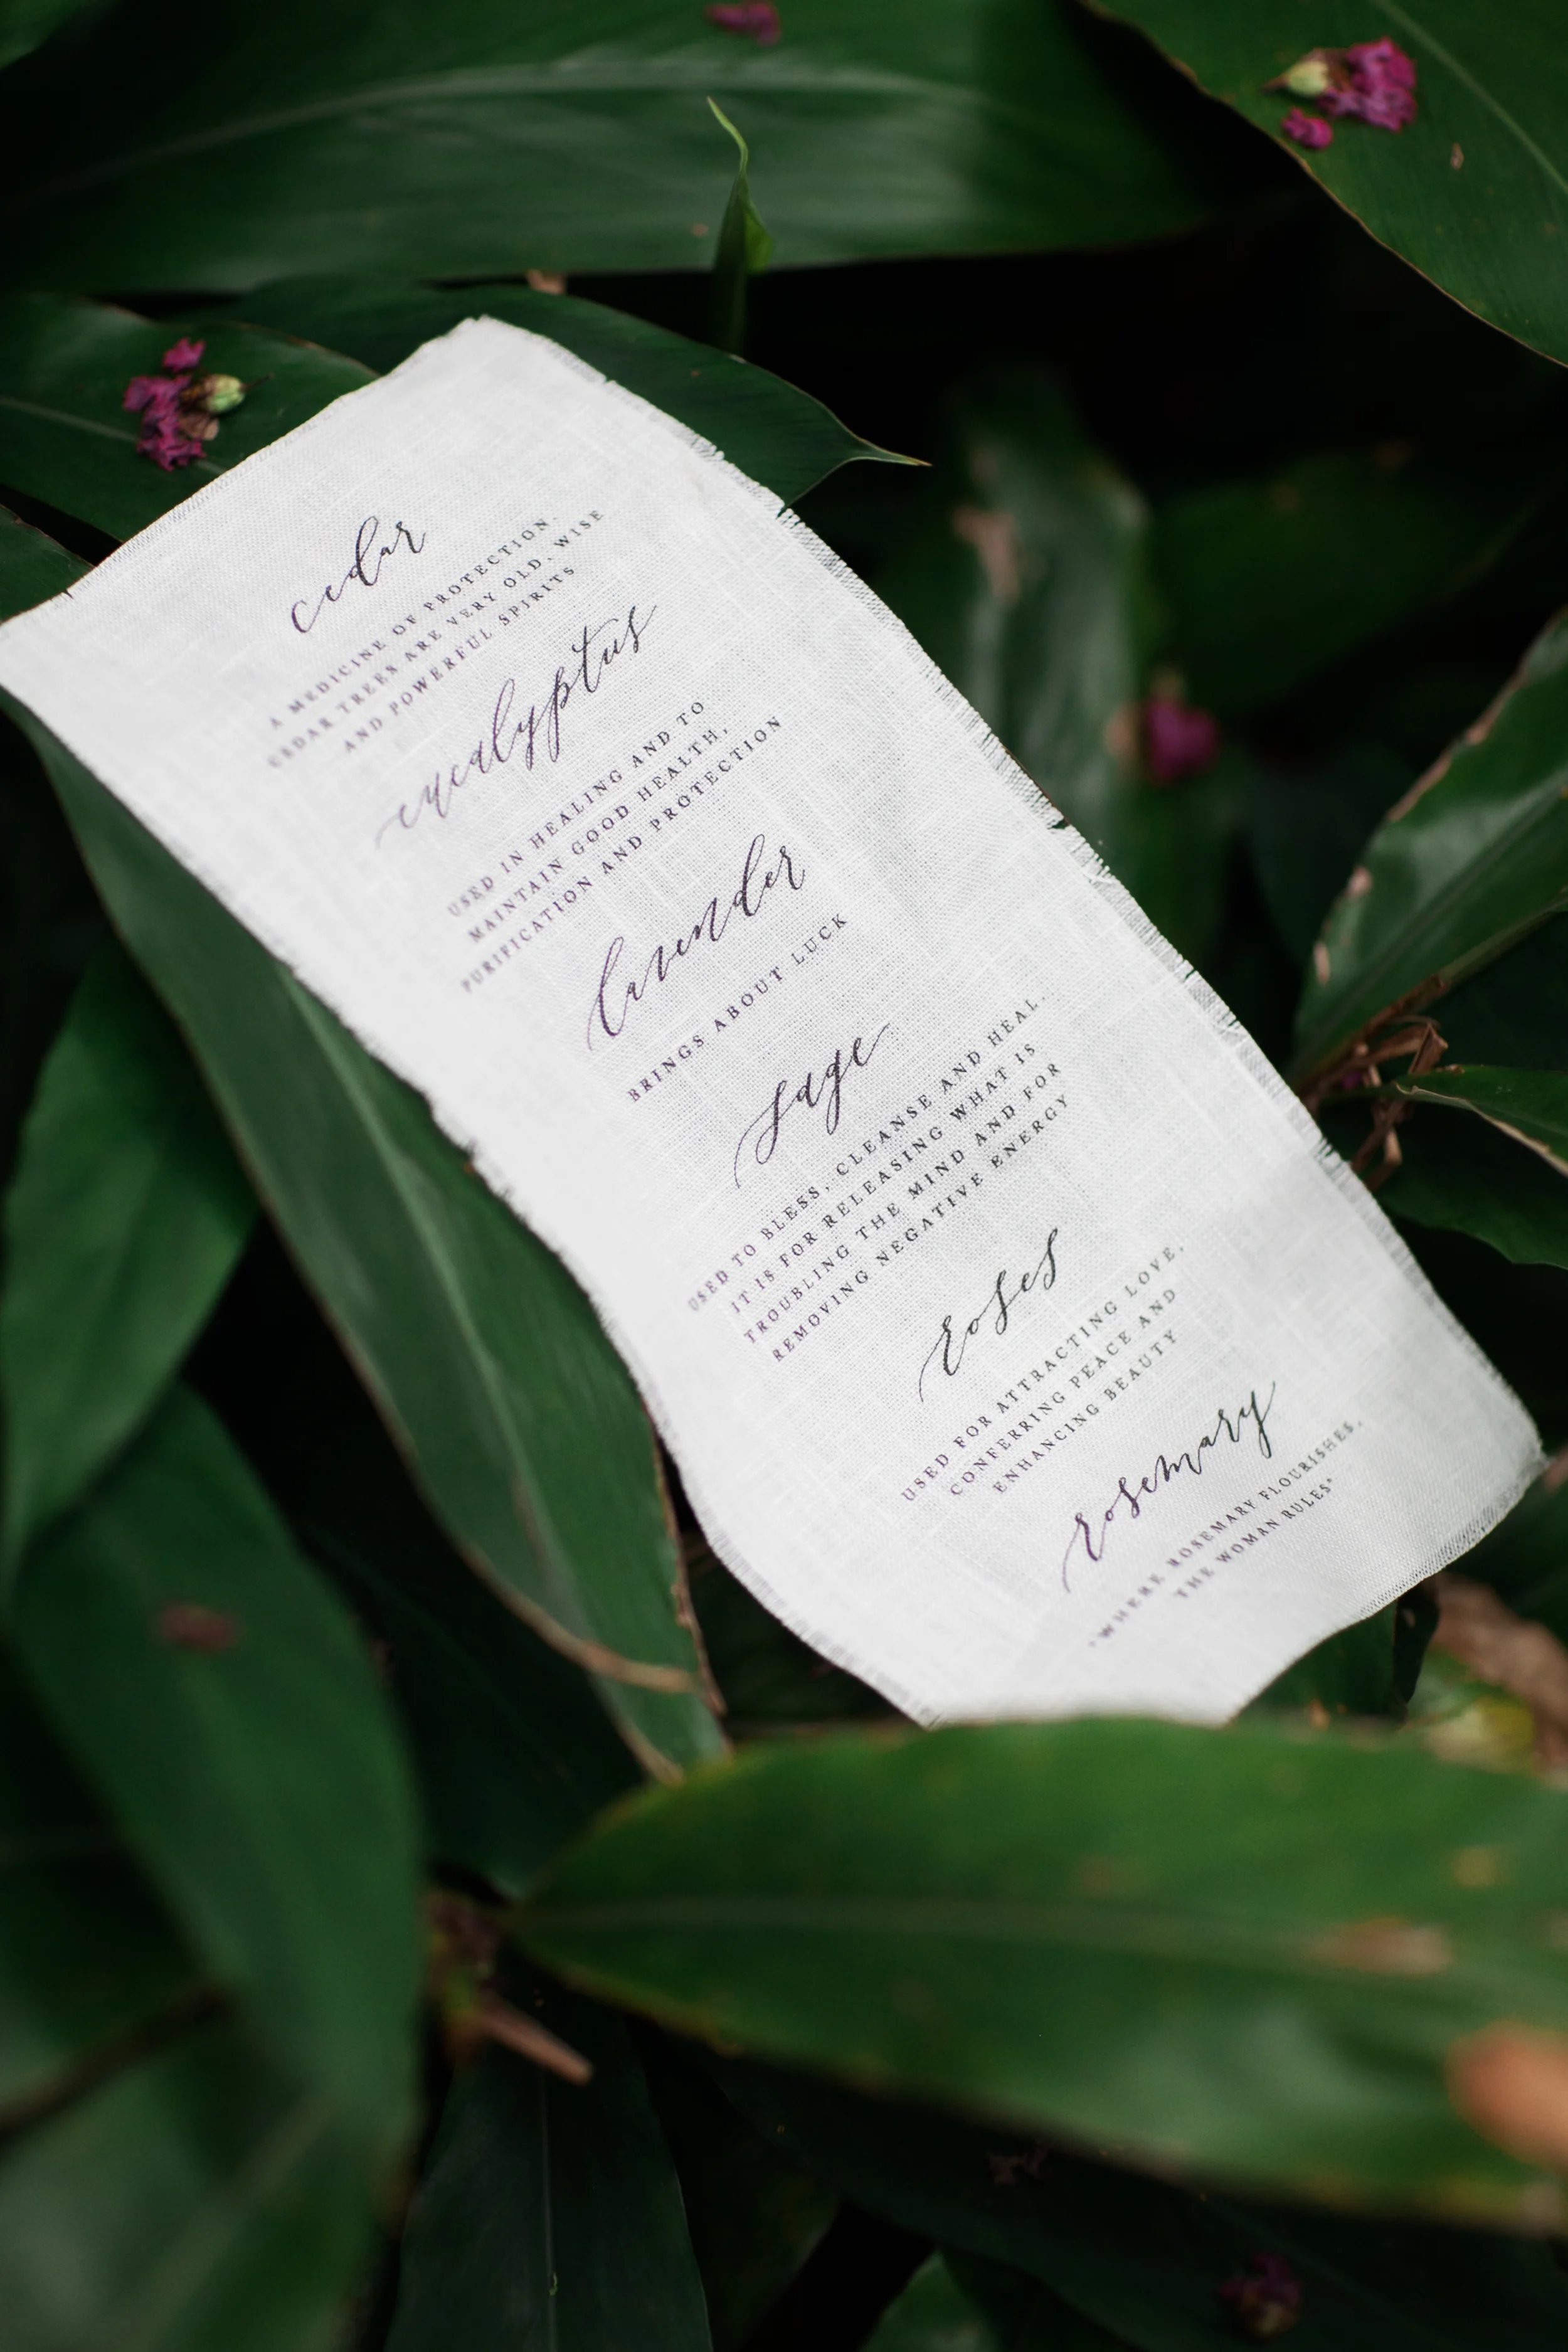 cedar
A MEDICINE OF PROTECTION.
CEDAR TREES ARE VERY OLD, WISE
AND POWERFUL SPIRITS
eucalyptus
USED IN HEALING AND TO
MAINTAIN GOOD HEALTH,
PURIFICATION AND PROTECTION
lavender
BRINGS ABOUT LUCK
sage
USED TO BLESS, CLEANSE AND HEAL.
IT IS FOR RELEASING WHAT IS
TROUBLING THE MIND AND FOR
REMOVING NEGATIVE ENERGY
roses
USED FOR ATTRACTING LOVE,
CONFERRING PEACE AND
ENHANCING BEAUTY
rosemary
"WHERE ROSEMARY FLOURISHES,
THE WOMAN RULES"